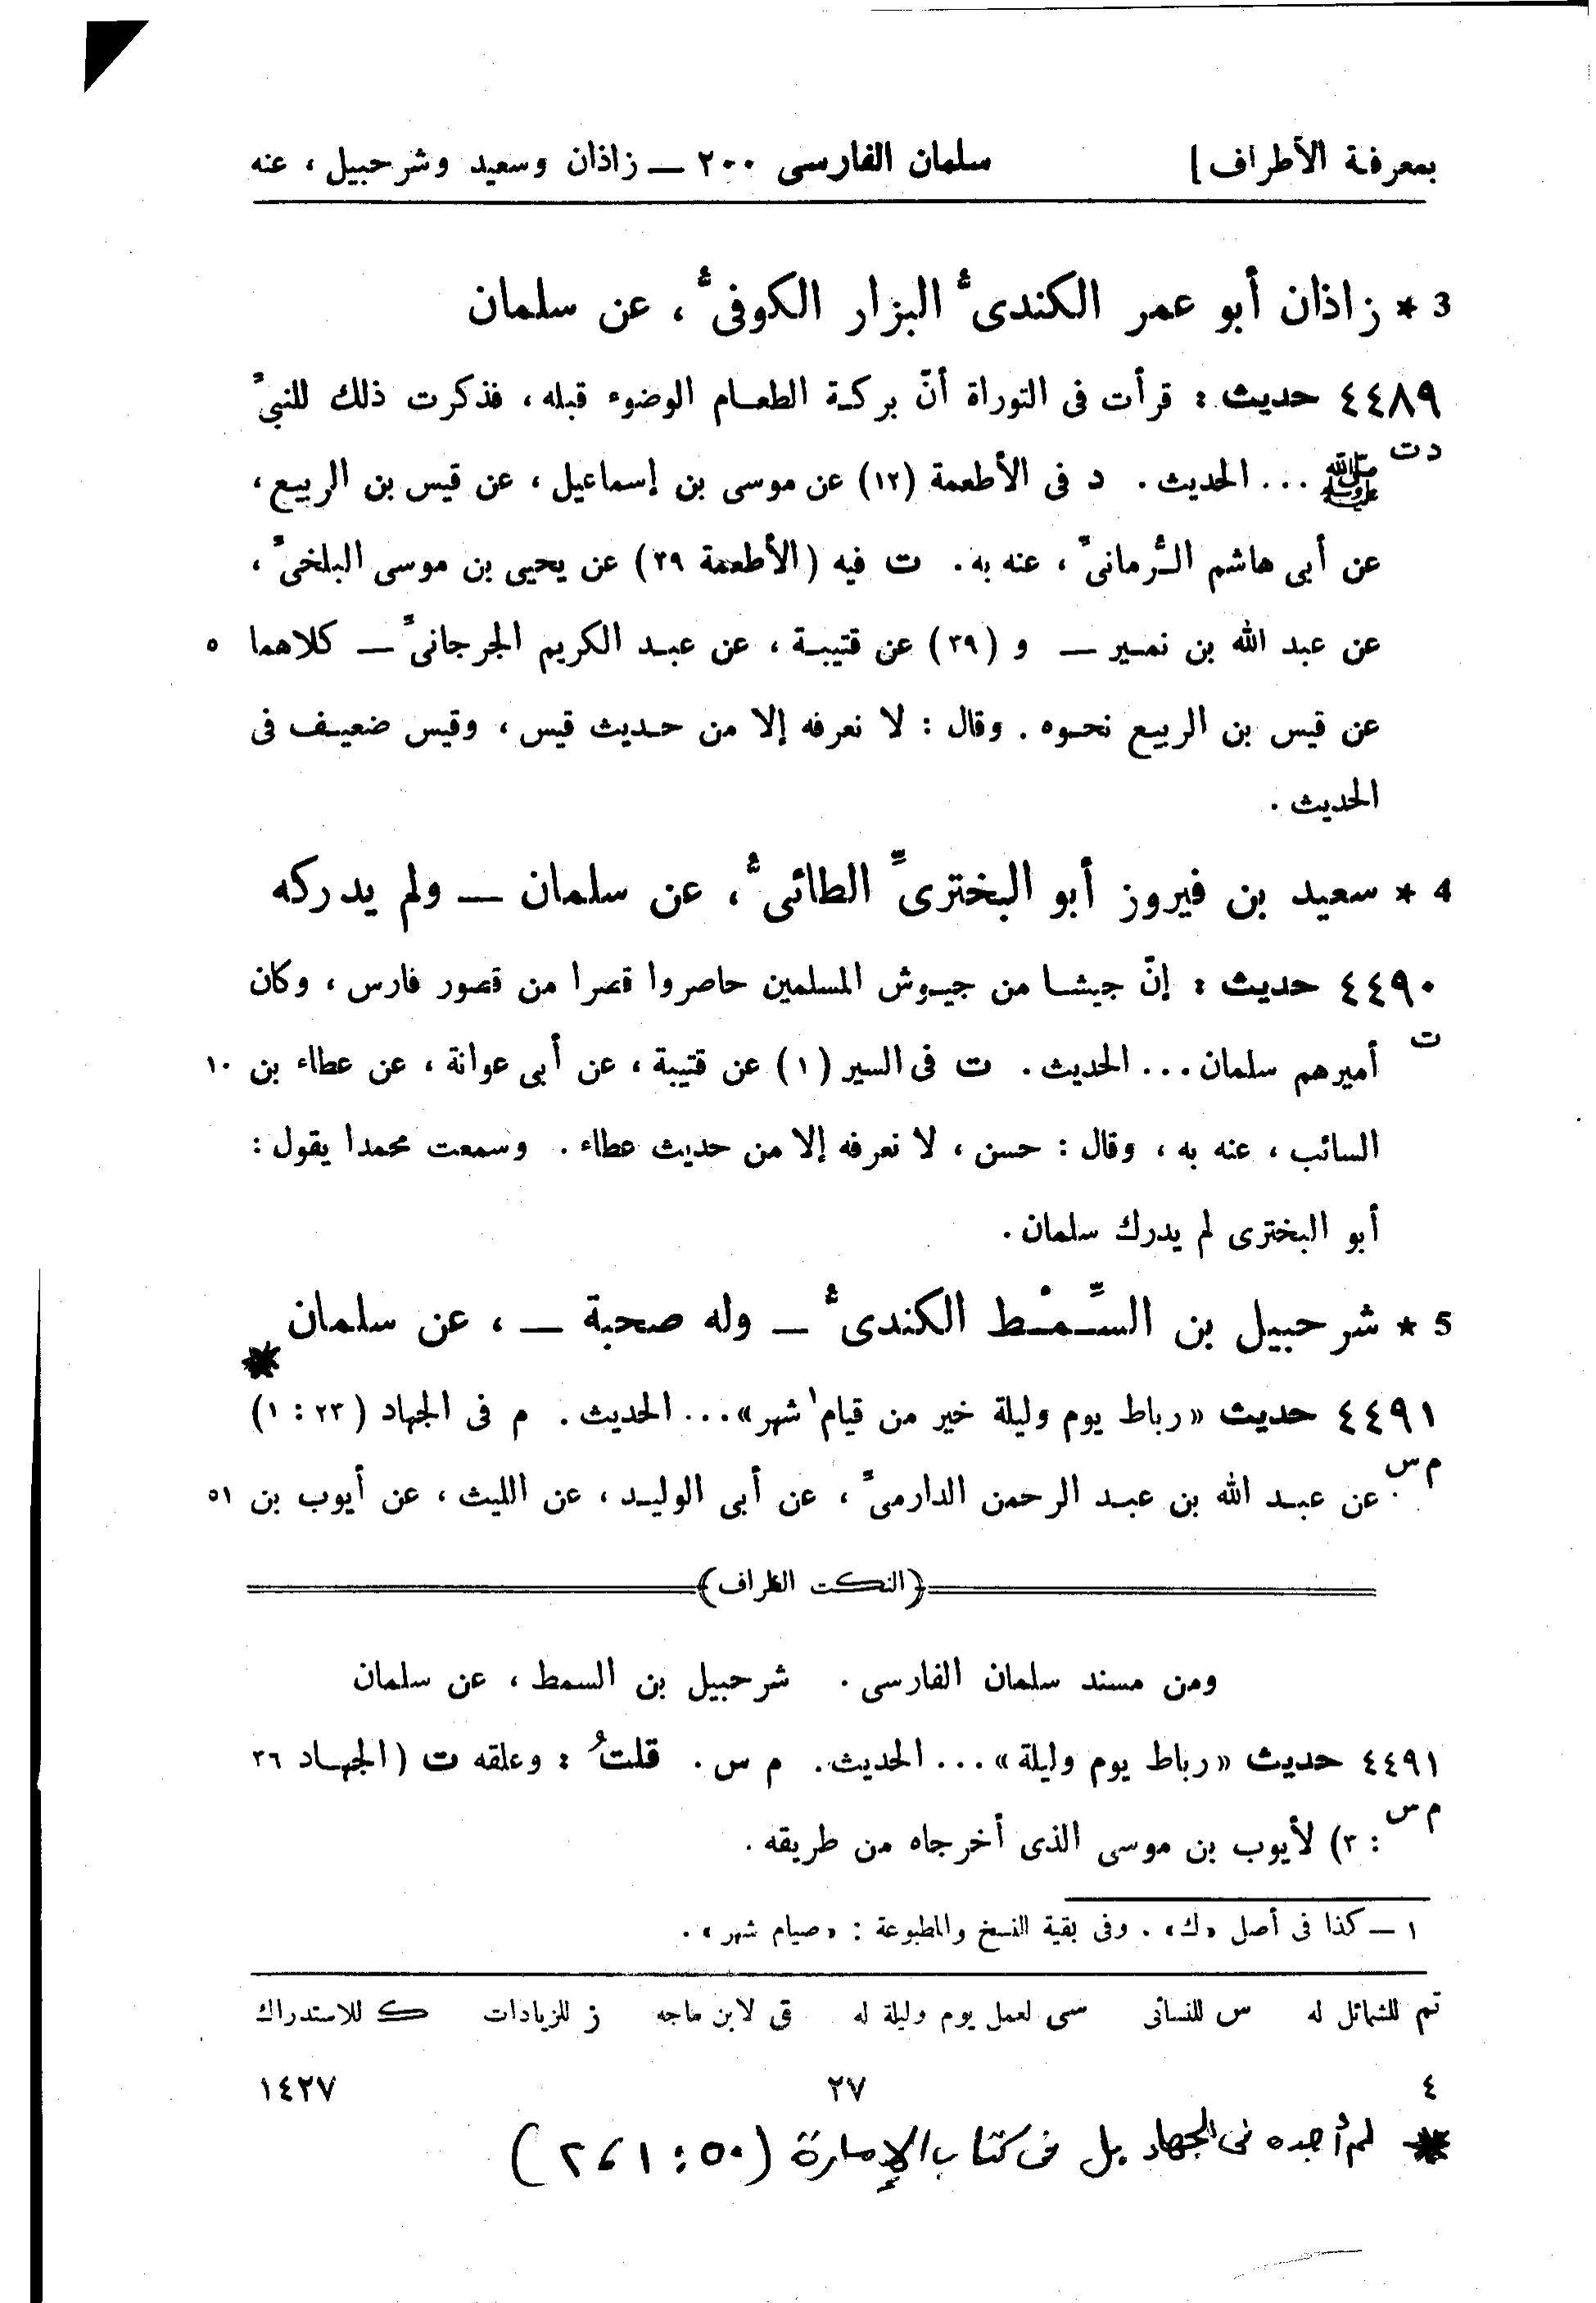 بمعرفة الأطراف] سلمان الفارسى ٢٠٠ — زاذان وسعيد وشرحبيل ، عنه
3 * زاذان أبو عمر الكندىُّ البزار الكوفىُّ ، عن سلمان
٤٤٨٩ حديث : قرأت فى التوراة أنّ بركة الطعام الوضوء قبله ، فذكرت ذلك للنبىِّ
د ت
ﷺ ... الحديث . د فى الأطعمة (١٢) عن موسى بن إسماعيل ، عن قيس بن الربيع ،
عن أبى هاشم الرُّمانىِّ ، عنه به . ت فيه (الأطعمة ٣٩) عن يحيى بن موسى البلخىِّ ،
عن عبد الله بن نمير — و (٣٩) عن قتيبة ، عن عبد الكريم الجرجانىِّ — كلاهما ٥
عن قيس بن الربيع نحوه . وقال : لا نعرفه إلا من حديث قيس ، وقيس ضعيف فى
الحديث .
4 * سعيد بن فيروز أبو البخترىِّ الطائىُّ ، عن سلمان — ولم يدركه
٤٤٩٠ حديث : إنّ جيشا من جيوش المسلمين حاصروا قصرا من قصور فارس ، وكان
ت
أميرهم سلمان ... الحديث . ت فى السير (١) عن قتيبة ، عن أبى عوانة ، عن عطاء بن ١٠
السائب ، عنه به ، وقال : حسن ، لا نعرفه إلا من حديث عطاء . وسمعت محمدا يقول :
أبو البخترى لم يدرك سلمان .
5 * شرحبيل بن السِّمْط الكندىُّ — وله صحبة — ، عن سلمان
*
٤٤٩١ حديث «رباط يوم وليلة خير من قيام١ شهر» ... الحديث . م فى الجهاد (٢٣ : ١)
م س
عن عبد الله بن عبد الرحمن الدارمىِّ ، عن أبى الوليد ، عن الليث ، عن أيوب بن ٥١
(النكت الظراف)
ومن مسند سلمان الفارسى . شرحبيل بن السمط ، عن سلمان
٤٤٩١ حديث «رباط يوم وليلة» ... الحديث . م س . قلتُ : وعلقه ت (الجهاد ٢٦
م س
: ٣) لأيوب بن موسى الذى أخرجاه من طريقه .
١ — كذا فى أصل «ك» . وفى بقية النسخ والمطبوعة : «صيام شهر» .
تم للشمائل له س للنسائى سى لعمل يوم وليلة له ق لابن ماجه ز للزيادات ك للاستدراك
٤ ٢٧ ١٤٢٧
* لم أجده فى الجهاد بل فى كتاب الإمارة (٥٠ : ١ ، ٢)